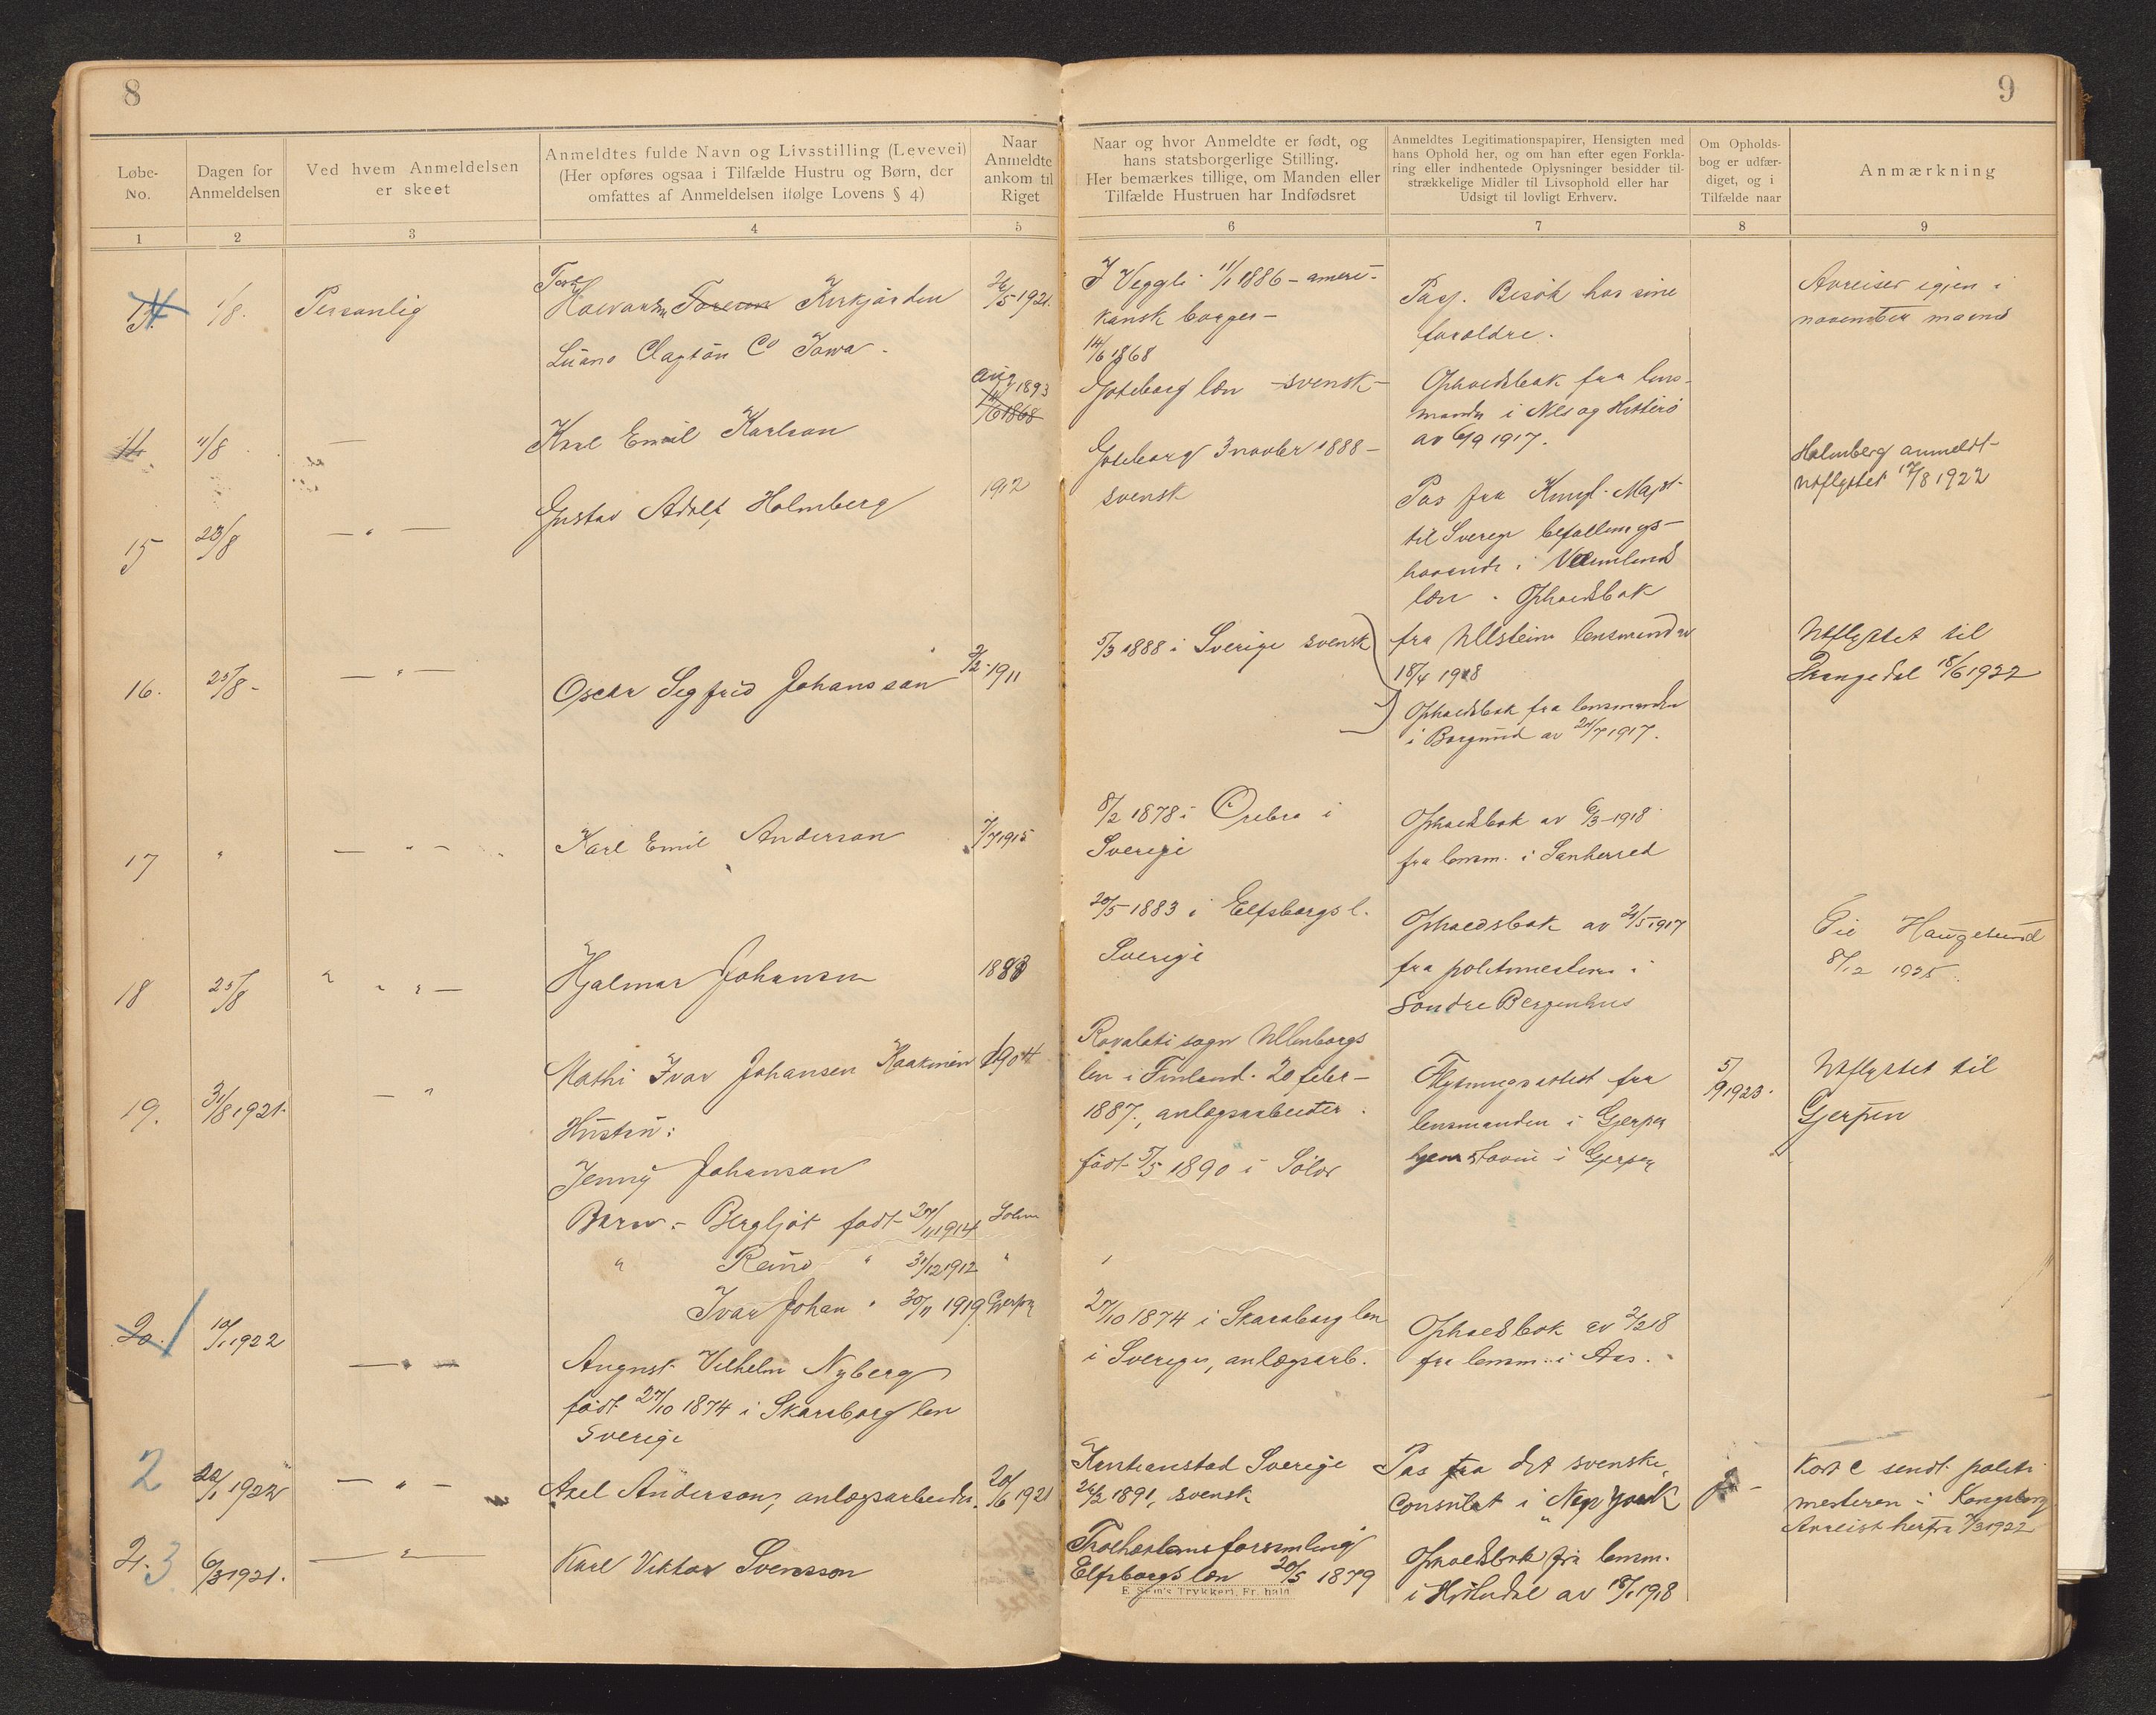 8
Løbe-
No.
Dagen for
Anmeldelsen
Ved hvem Anmeldelsen
er skeet
Anmeldtes fulde Navn og Livsstilling (Levevei)
(Her opføres ogsaa i Tilfælde Hustru og Børn, der
omfattes af Anmeldelsen ifølge Lovens § 4)
Naar
Anmeldte
ankom til
Riget
1
2
3
4
5
1/8. Personlig
Kirkjorden 26/5 1921.
Clayton Co Iowa.
Aug 1893
14/6 1868
11/8 — Karl Emil Karlson
15 23/8 — " — Gustav Adolf Holmberg 1912
16. 25/8 - — " — Oscar Segfrid Johansson 2/2-1911
17 " — " — Karl Emil Anderson 7/7 1915
18 25/8 " " " — Hjalmar Johansen 1888
19. 31/8 1921. — " Mathi Ivar Johansen Kaakinen 1904
Hustru:
Jenny Johanson
Barn:- Bergljot født 27/11 1914 Solør
" Reino " 31/12 1912 "
Ivar Johan " 30/11 1919. Gjerpen
20. 10/1 1922 — " — August Vilhelm Nyberg
født 27/10 1874 i Skaraborg len
Sverige
2 20/1 1922 — " — Axel Anderson, anlægsarbeider. 20/6 1921
2. 3 6/3 1921. — " — Karl Viktor Svensson
9
Naar og hvor Anmeldte er født, og
hans statsborgerlige Stilling.
Her bemærkes tillige, om Manden eller
Tilfælde Hustruen har Indfødsret
Anmeldtes Legitimationspapirer, Hensigten med
hans Ophold her, og om han efter egen Forkla-
ring eller indhentede Oplysninger besidder til-
strækkelige Midler til Livsophold eller har
Udsigt til lovligt Erhverv.
Om Opholds-
bog er udfær-
diget, og i
Tilfælde naar
Anmærkning
6
7
8
9
I Veggli 11/1 1886 - ameri-
kansk borger -
Pas. Besøk hos sine
foreldre.
Avreiser igjen i
november maaned
14/6 1868
Gøteborg læn - svensk -
Opholdsbok fra lens-
manden i Nes og Hitterø
av 6/9 1917.
Gøteborg 3 novber 1888 -
svensk
Pas fra Kungl. Majst.
til Sverige befallnings-
havande i Vermlands
læn. Opholdsbok
fra Ullstein lensmand av
18/4 1918
Holmberg anmeldt
utflyttet 17/8 1922
5/3 1888 i Sverige svensk
Opholdsbok fra lensmanden
i Borgund av 24/7 1917.
Utflyttet til
Drangedal 18/6 1922
8/2 1878 i Örebro i
Sverige
Opholdsbok av 6/3-1918
fra lensm. i Sanherred
20/5 1883 i Elfsborgs l.
Sverige
Opholdsbok av 21/5 1917
fra politimesteren i
Søndre Bergenhus
Til Haugesund
8/12 1925.
sogn
len i Finland. 20 febr-
1887., anlægsarbeider.
født 5/5 1890 i Solør
Flytningsattest fra
lensmanden i Gjerpen
i Gjerpen
5/9 1923.
Utflyttet til
Gjerpen
27/10 1874 i Skaraborg len
i Sverige, anlægsarb.
Opholdsbok av 2/2 18
fra lensm. i Aas.
Kristianstad Sverige
26/2 1891, svensk
Pas fra det svenske
Consulat i New York
ja -
Kort C sendt politi
mesteren i Kongsberg
Avreist herfra 7/3 1922
Elfsborgs læn 20/5 1879
Opholdsbok fra lensm.
i Hitterdal av 18/1 1918
E. Sem's Trykkeri, Fr.hald